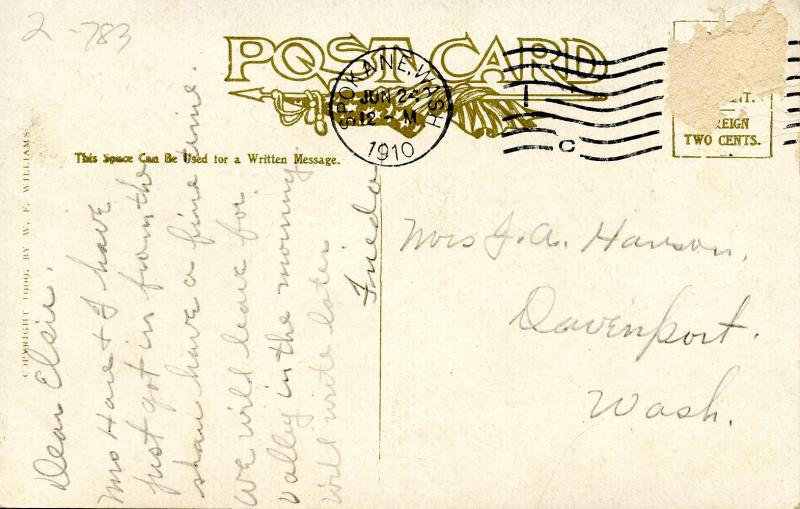 2 -783
POST CARD
SPOKANE, WASH
JUN 24
12 - M
1910
C
NT.
REIGN
TWO CENTS.
This Space Can Be Used for a Written Message.
COPYRIGHT 1909, BY W. F. WILLIAMS
Dear Elsie.
Mrs Hare & I have
just got in from the
show have a fine time.
We will leave for
Vally in the morning
Will write later
Frieda
Mrs J. A. Hanson,
Davenport.
Wash.